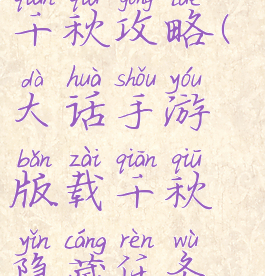 qiān qiū gōng lüè
千秋攻略(
dà huà shǒu yóu
大话手游
bǎn zài qiān qiū
版载千秋
yǐn cáng rèn wù
隐藏任务